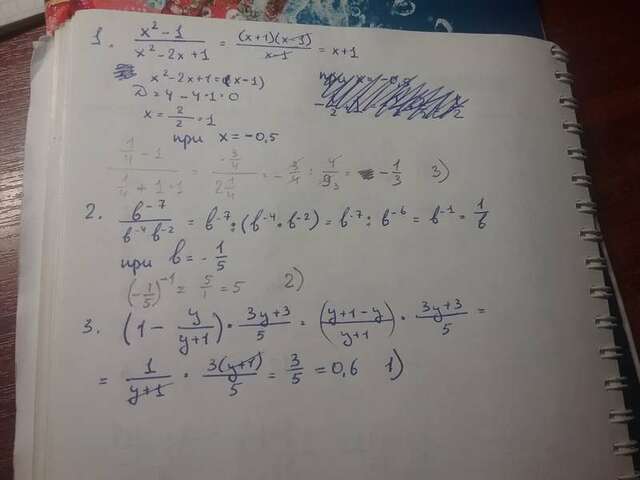 1. (x²-1)/(x²-2x+1) = ((x+1)(x-1))/(x-1) = x+1
x²-2x+1=(x-1)
D=4-4·1·0
x=2/2=1
при x=-0,5
(1/4-1)/(1/4+1+1) = (-3/4)/(2 1/4) = -3/4 : 4/9₃ = -1/3 3)
2. b⁻⁷/(b⁻⁴b⁻²) = b⁻⁷:(b⁻⁴·b⁻²) = b⁻⁷:b⁻⁶ = b⁻¹ = 1/b
при b=-1/5
(-1/5)⁻¹ = 5/1 = 5 2)
3. (1 - y/(y+1)) · (3y+3)/5 = ((y+1-y)/(y+1)) · (3y+3)/5 =
= 1/(y+1) · 3(y+1)/5 = 3/5 = 0,6 1)